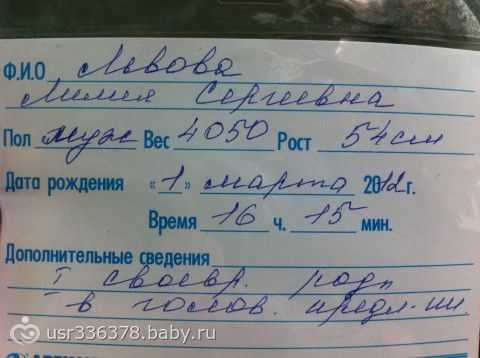 Ф.И.О Львова
Лилия Сергеевна
Пол муж Вес 4050 Рост 54см
Дата рождения «1» марта 2012г.
Время 16 ч. 15 мин.
Дополнительные сведения
I своевр. роды
в голов. предл-ии.
usr336378.baby.ru